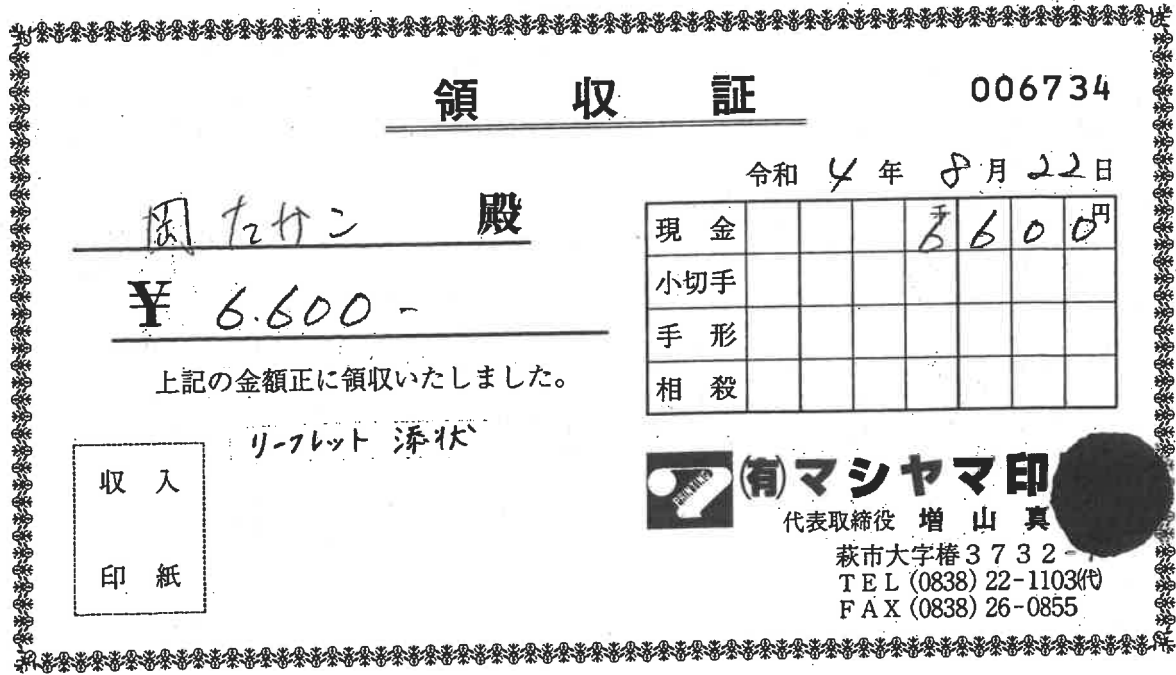 領収証
006734
令和 4 年 8 月 22 日
岡 たかこ 殿
¥ 6.600-
上記の金額正に領収いたしました。
リーフレット 添状
現金 6 6 0 0
千 円
小切手
手形
相殺
収入
印紙
(有)マシヤマ印
代表取締役 増山真
萩市大字椿3732-
TEL (0838) 22-1103(代)
FAX (0838) 26-0855